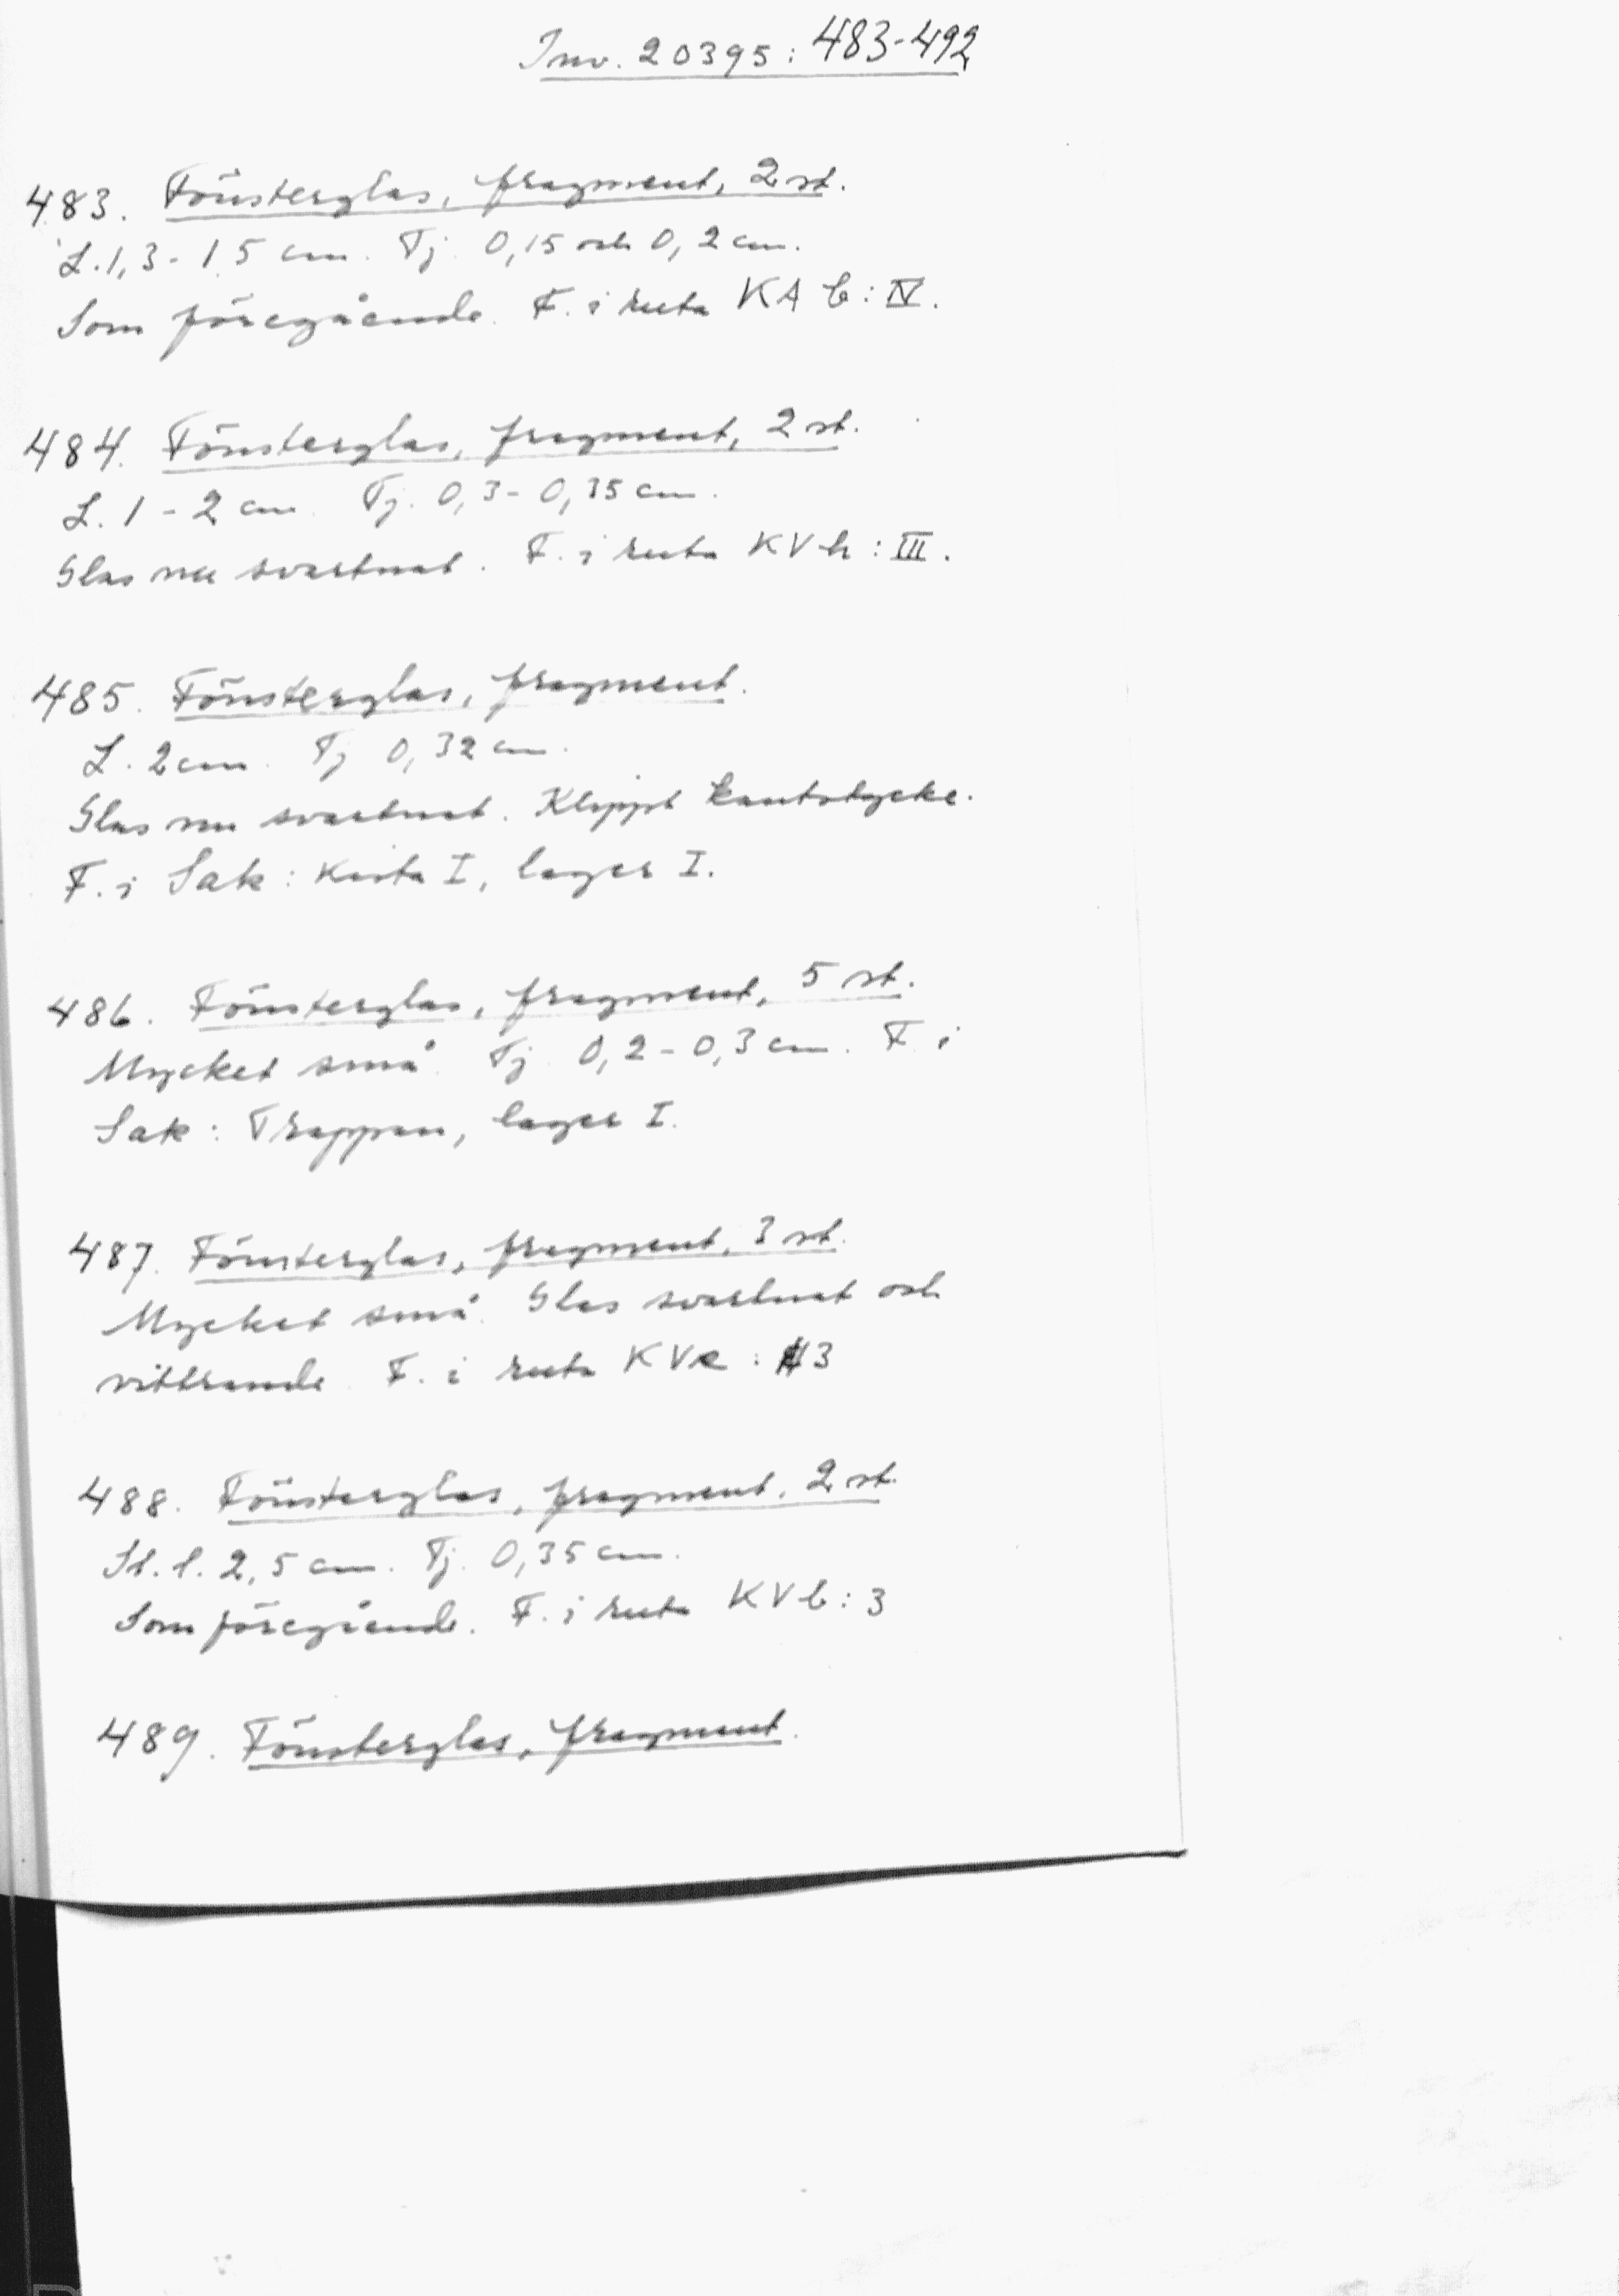 Inv. 20395: 483-492
483. Fönsterglas, fragment, 2 st.
L. 1,3 - 1,5 cm. Tj. 0,15 och 0,2 cm.
Som föregående. F. i ruta KA b: IV.
484. Fönsterglas, fragment, 2 st.
L. 1 - 2 cm. Tj. 0,3 - 0,35 cm.
Glas nu svartnat. F. i ruta KV h: III.
485. Fönsterglas, fragment.
L. 2 cm. Tj 0,32 cm.
Glas nu svartnat. Klippt kantstycke.
F. i Sak: Kista I, lager I.
486. Fönsterglas, fragment, 5 st.
Mycket små. Tj. 0,2 - 0,3 cm. F. i
Sak: Trappan, lager I.
487. Fönsterglas, fragment, 3 st.
Mycket små. Glas svartnat och
vittrande. F. i ruta KV : 3
488. Fönsterglas, fragment, 2 st.
St. l. 2,5 cm. Tj. 0,35 cm.
Som föregående. F. i ruta KV b: 3
489. Fönsterglas, fragment.